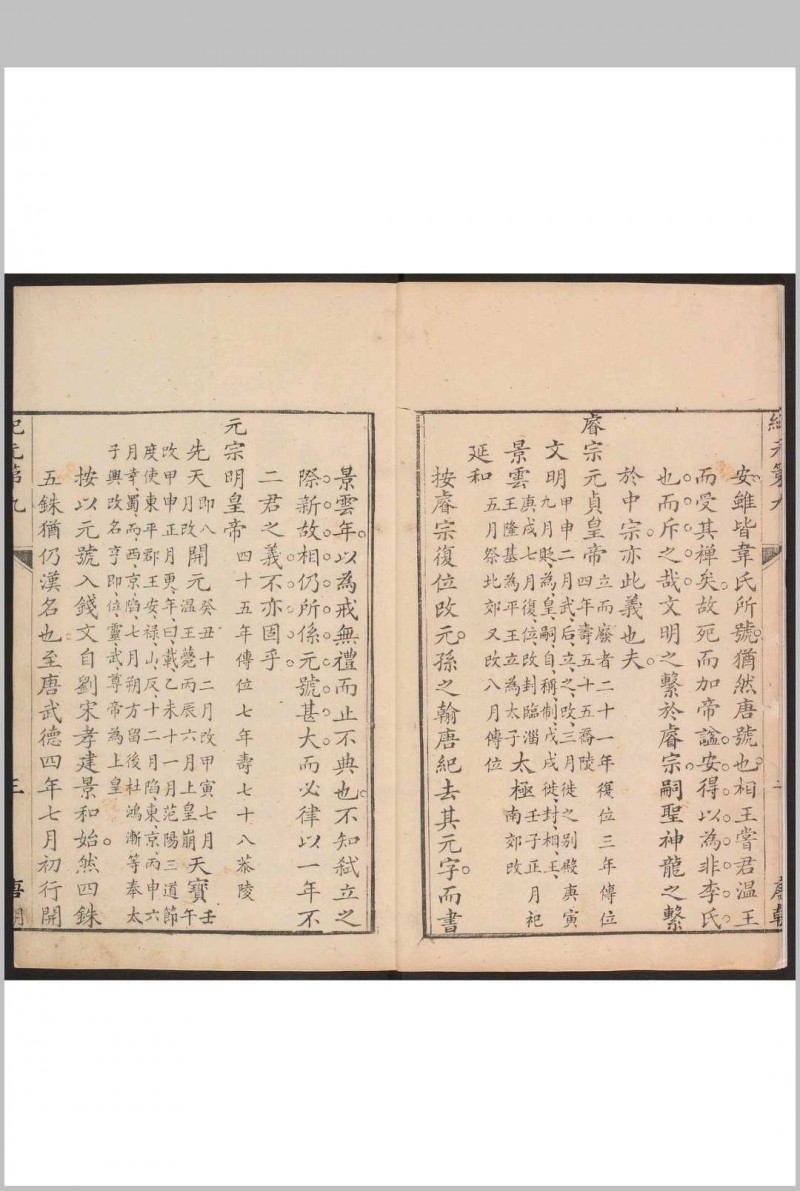 安雖皆韋氏所號猶然唐號也相王嘗君溫王
而受其禪矣故死而加帝謚安得以為非李氏
也而斥之哉文明之繫於睿宗嗣聖神龍之繫
於中宗亦此義也夫
睿宗元貞皇帝 立而廢者二十一年復位三年傳位
四年壽五十五喬陵
文明 甲申二月武后立之改三月徙之别殿庚寅
九月貶為皇嗣自稱制戊戌徙封相王
景雲 庚戌七月復位改封臨淄
王隆基為平王立為太子 太極 壬子正月祀
南郊改
延和 五月祭北郊又改八月傳位
按睿宗復位改元孫之翰唐紀去其元字而書
景雲年以為戒無禮而止不典也不知弑立之
際新故相仍所係元號甚大而必律以一年不
二君之義不亦固乎
元宗明皇帝 四十五年傳位七年壽七十八泰陵
先天 即八
月改 開元 癸丑十二月改甲寅七月
溫王薨丙辰六月上皇崩 天寶 壬
午
改甲申正月更年曰載乙未十一月范陽三道節
度使東平郡王安禄山反十二月陷東京丙申六
月幸蜀而西京陷七月朔方留後杜鴻漸等奉太
子興改名亨即位靈武尊帝為上皇
按以元號入錢文自劉宋孝建景和始然四銖
五銖猶仍漢名也至唐武德四年七月初行開
紀元第九 三 唐朝